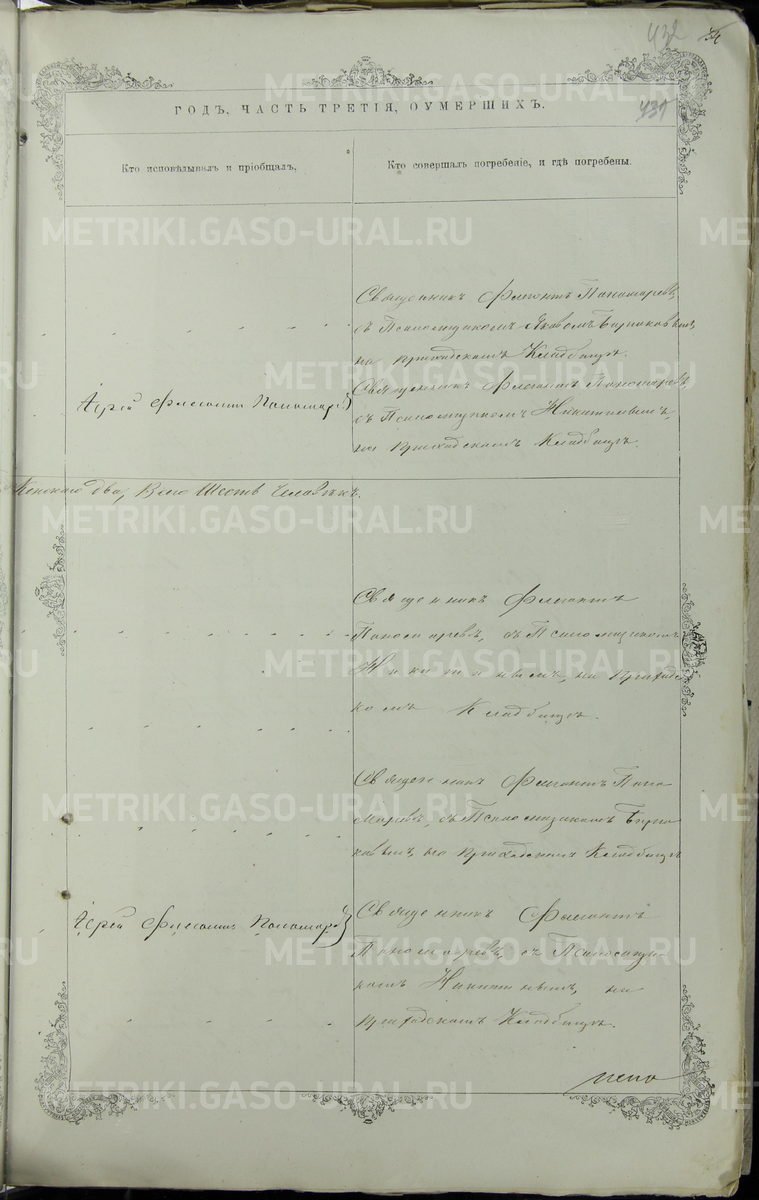 432
431
ГОДЪ, ЧАСТЬ ТРЕТІЯ, ОУМЕРШИХЪ.
Кто исповѣдывалъ и пріобщалъ,
Кто совершалъ погребеніе, и гдѣ погребены.
METRIKI.GASO-URAL.RU
Священникъ Флегонтъ Пономаревъ,
съ Псаломщикомъ Яковомъ Бирюковымъ,
на приходскомъ Кладбищѣ.
Іерей Флегонтъ Пономаревъ
Священникъ Флегонтъ Пономаревъ
съ Псаломщикомъ Никитинымъ,
на Приходскомъ Кладбищѣ.
Женскаго два, Всего Шесть Человѣкъ.
Священникъ Флегонтъ
Пономаревъ, съ Псаломщикомъ
Никитинымъ, на Приходс
комъ Кладбищѣ.
Священникъ Флегонтъ Поно
маревъ, съ Псаломщикомъ Бирю
ковымъ, на Приходскомъ Кладбищѣ
Іерей Флегонтъ Пономаревъ
Священникъ Флегонтъ
Пономаревъ, съ Псаломщи
комъ Никитинымъ, на
Приходскомъ Кладбищѣ.